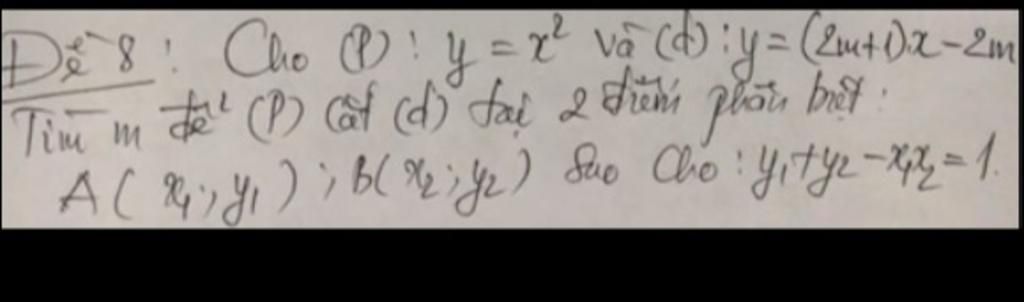 Đề 8 : Cho (P) : y = x² và (d) : y = (2m+1)x - 2m
Tìm m để (P) cắt (d) tại 2 điểm phân biệt :
A( x₁ ; y₁ ) ; B( x₂ ; y₂ ) sao cho : y₁+y₂ - x₁x₂ = 1.